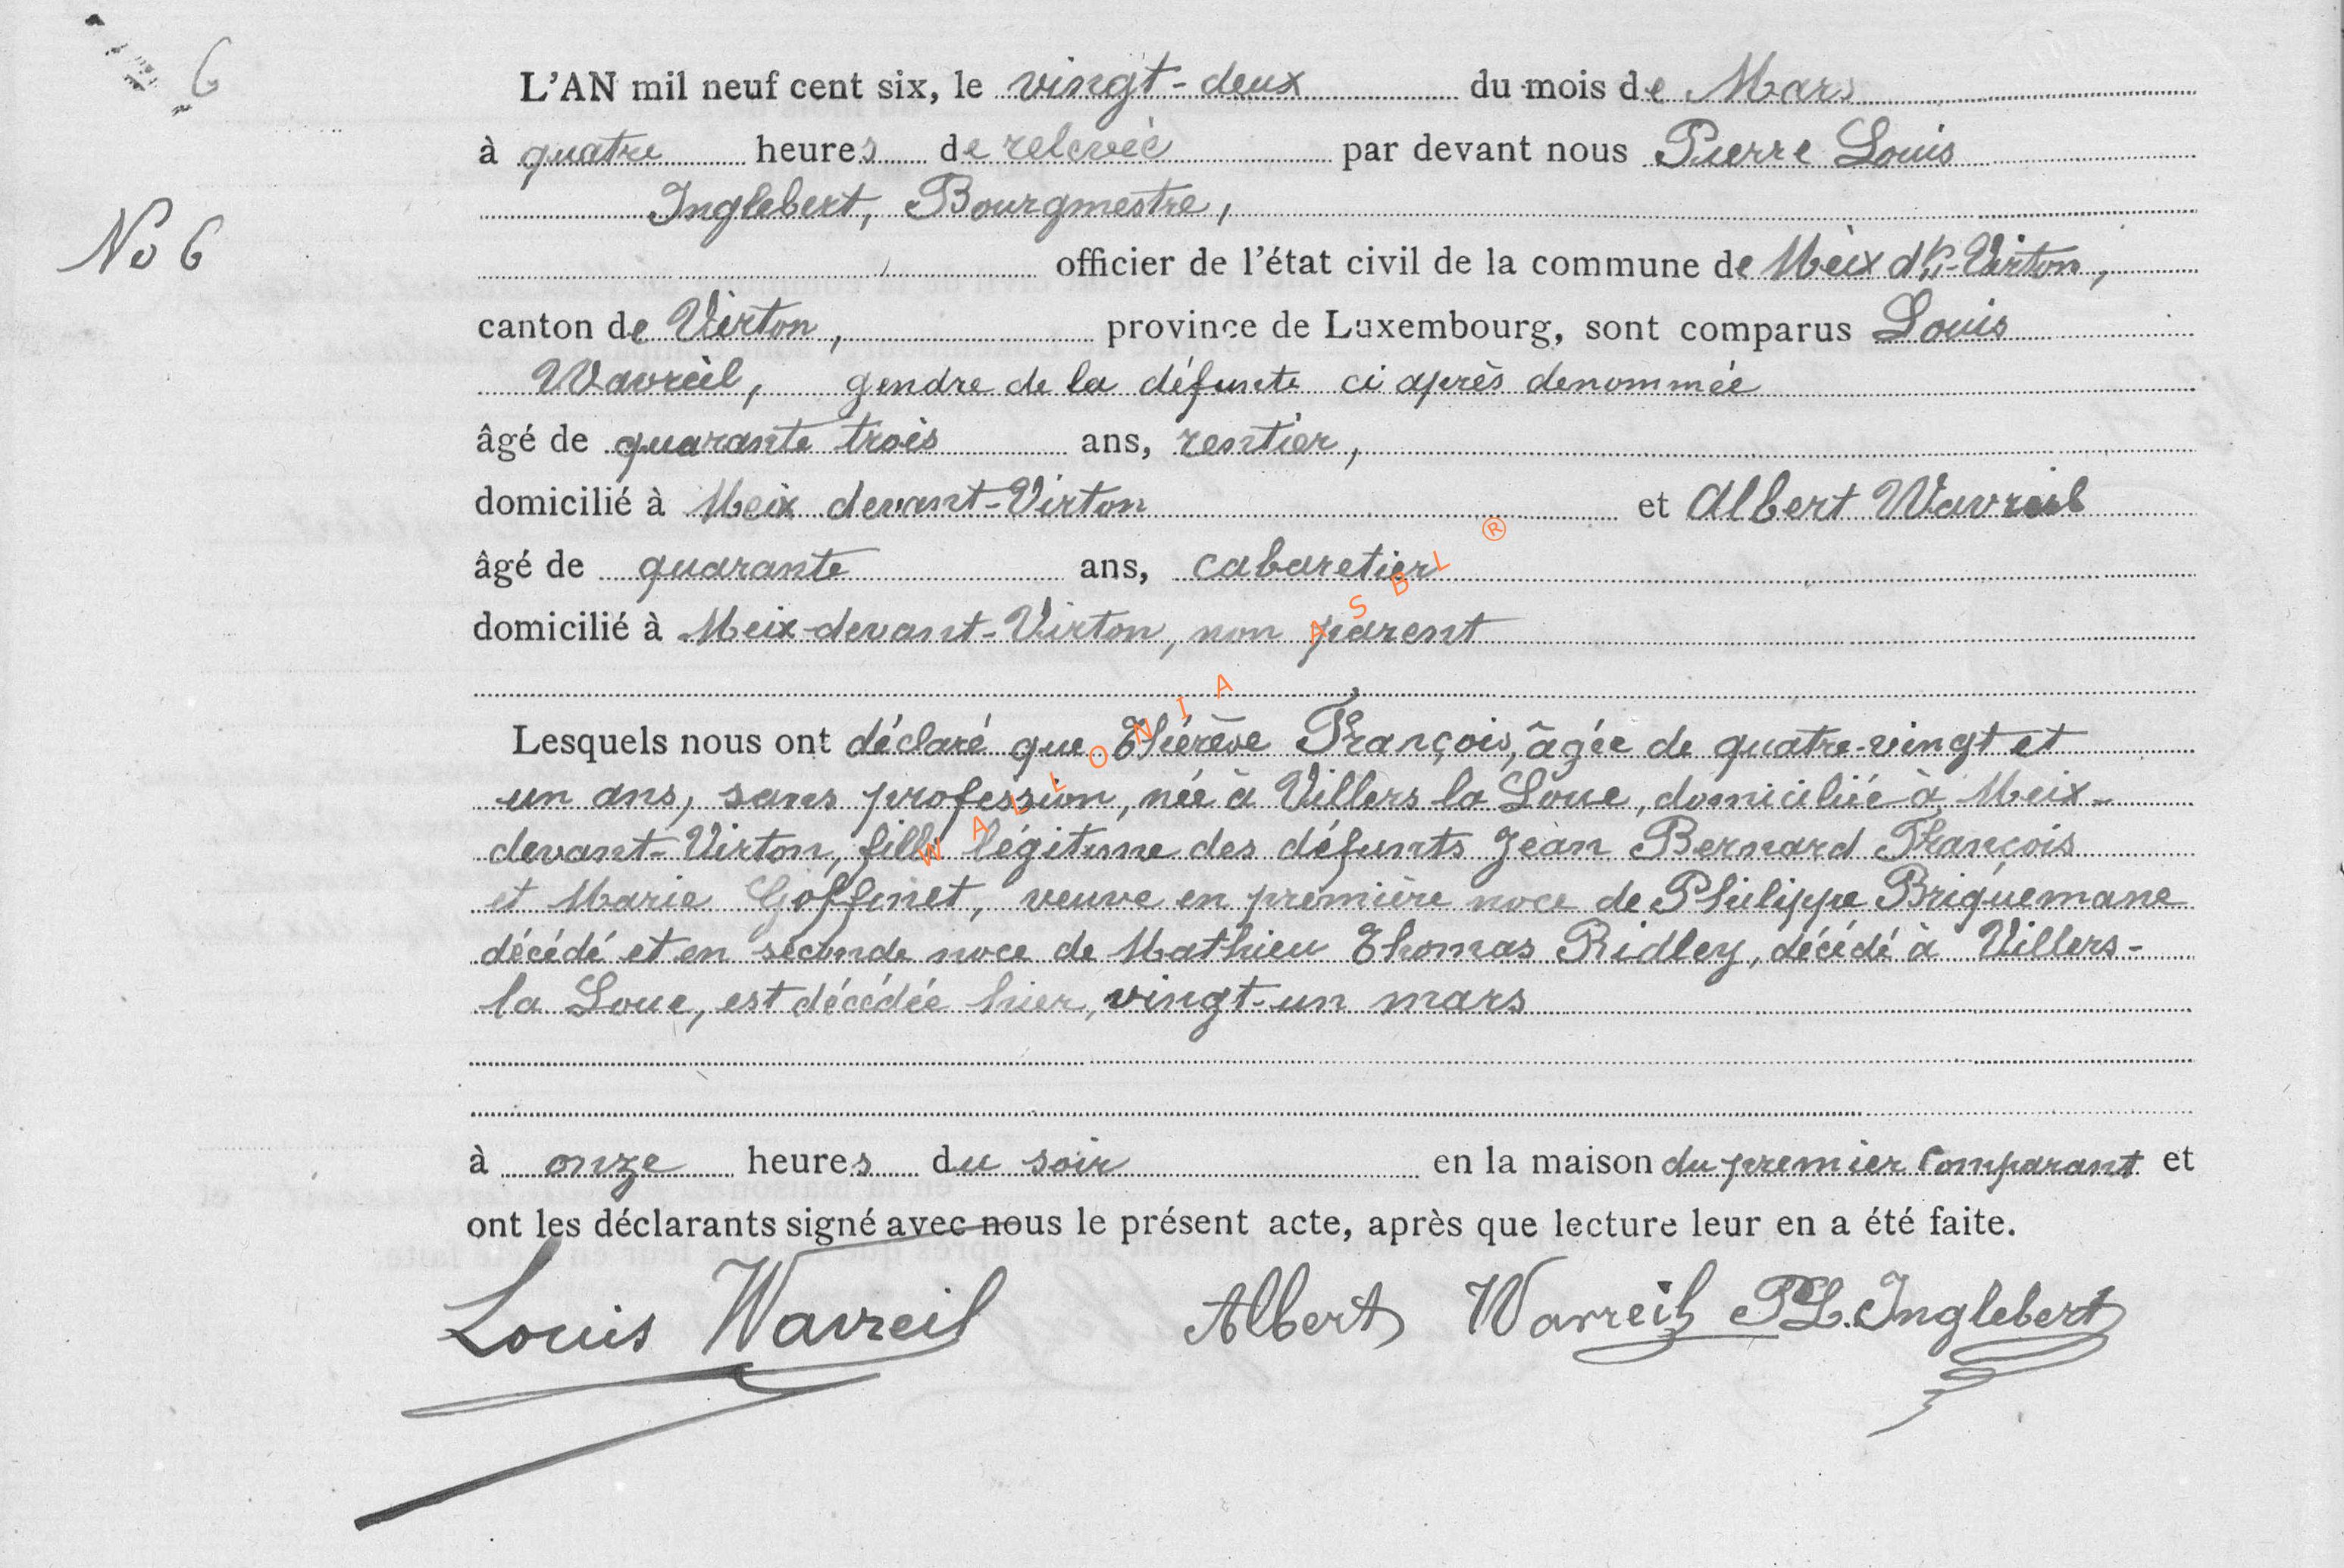 6
L'AN mil neuf cent six, le vingt-deux du mois de Mars
à quatre heures de relevée par devant nous Pierre Louis
Inglebert, Bourgmestre,
No 6
officier de l'état civil de la commune de Meix dt-Virton,
canton de Virton, province de Luxembourg, sont comparus Louis
Wavreil, gendre de la défunte ci après denommée
âgé de quarante trois ans, rentier,
domicilié à Meix devant-Virton et Albert Wavreil
âgé de quarante ans, cabaretier
domicilié à Meix-devant-Virton, non parent
Lesquels nous ont déclaré que Thérèse François, âgée de quatre-vingt et
un ans, sans profession, née à Villers la Loue, domiciliée à Meix-
devant-Virton, fille légitime des défunts Jean Bernard François
et Marie Goffinet, veuve en première noce de Philippe Briquemane
décédé et en seconde noce de Mathieu Thomas Ridley, décédé à Villers-
la Loue, est décédée hier, vingt-un mars
à onze heures du soir en la maison du premier comparant et
ont les déclarants signé avec nous le présent acte, après que lecture leur en a été faite.
Louis Wavreil Albert Wavreil PL. Inglebert
WALLONIA ASBL ®